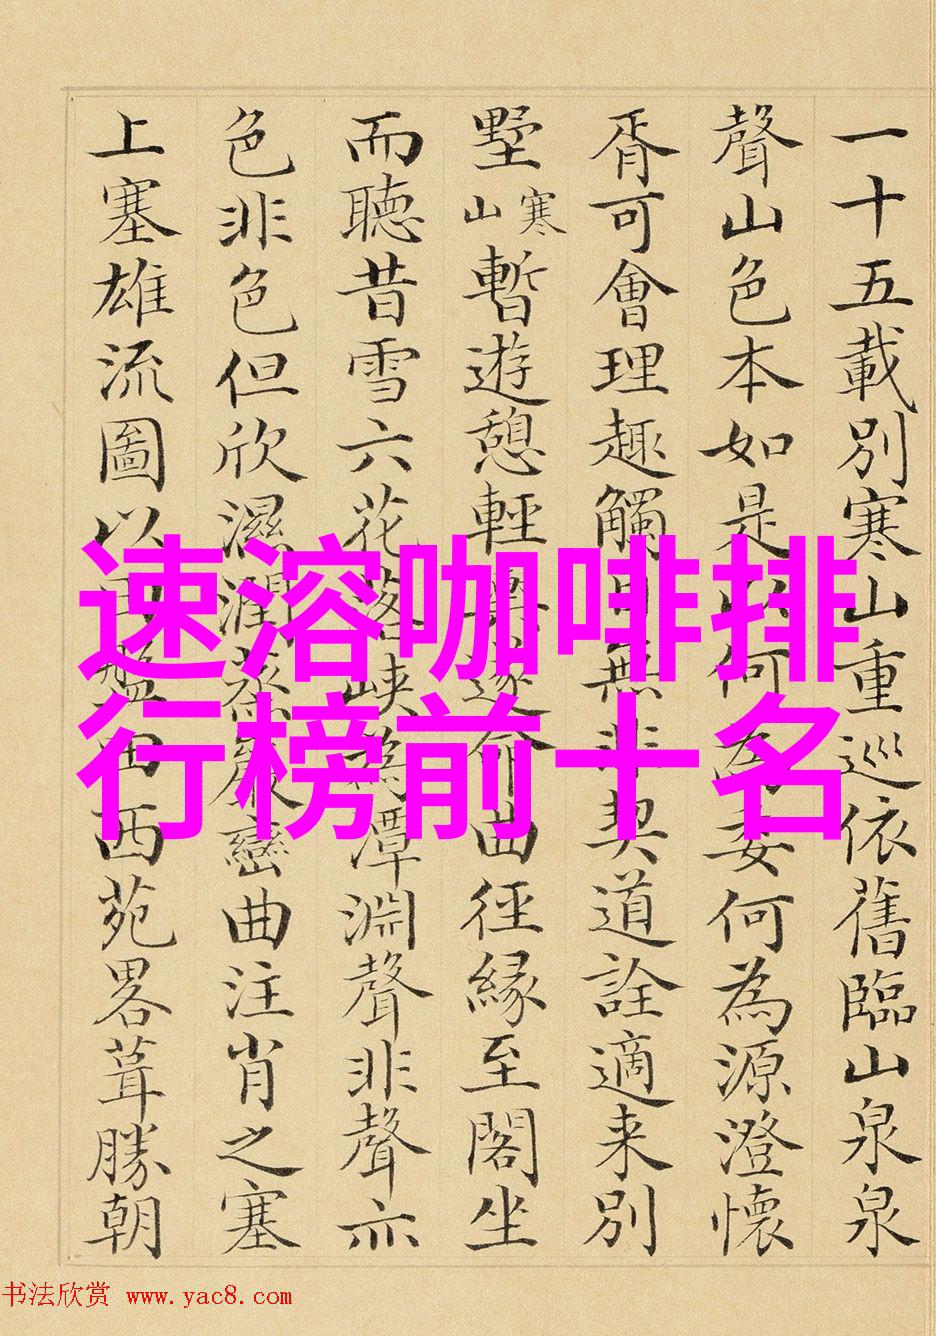 一十五載別寒山重巡依舊臨山泉泉
聲山色本如是何委何為源澄懷
胥可會理趣觸目無非契道詮適来別
墅寒山暫遊憩輕輿遂命曲徑縁至閣坐
而聴昔雪六花落峡為潭淵聲非聲亦
色非色但欣濕潤蒸巖巒曲注肖之塞
上塞雄流圖以盤西苑畧葺勝朝
速溶咖啡排
行榜前十名
书法欣赏 www.yac8.com